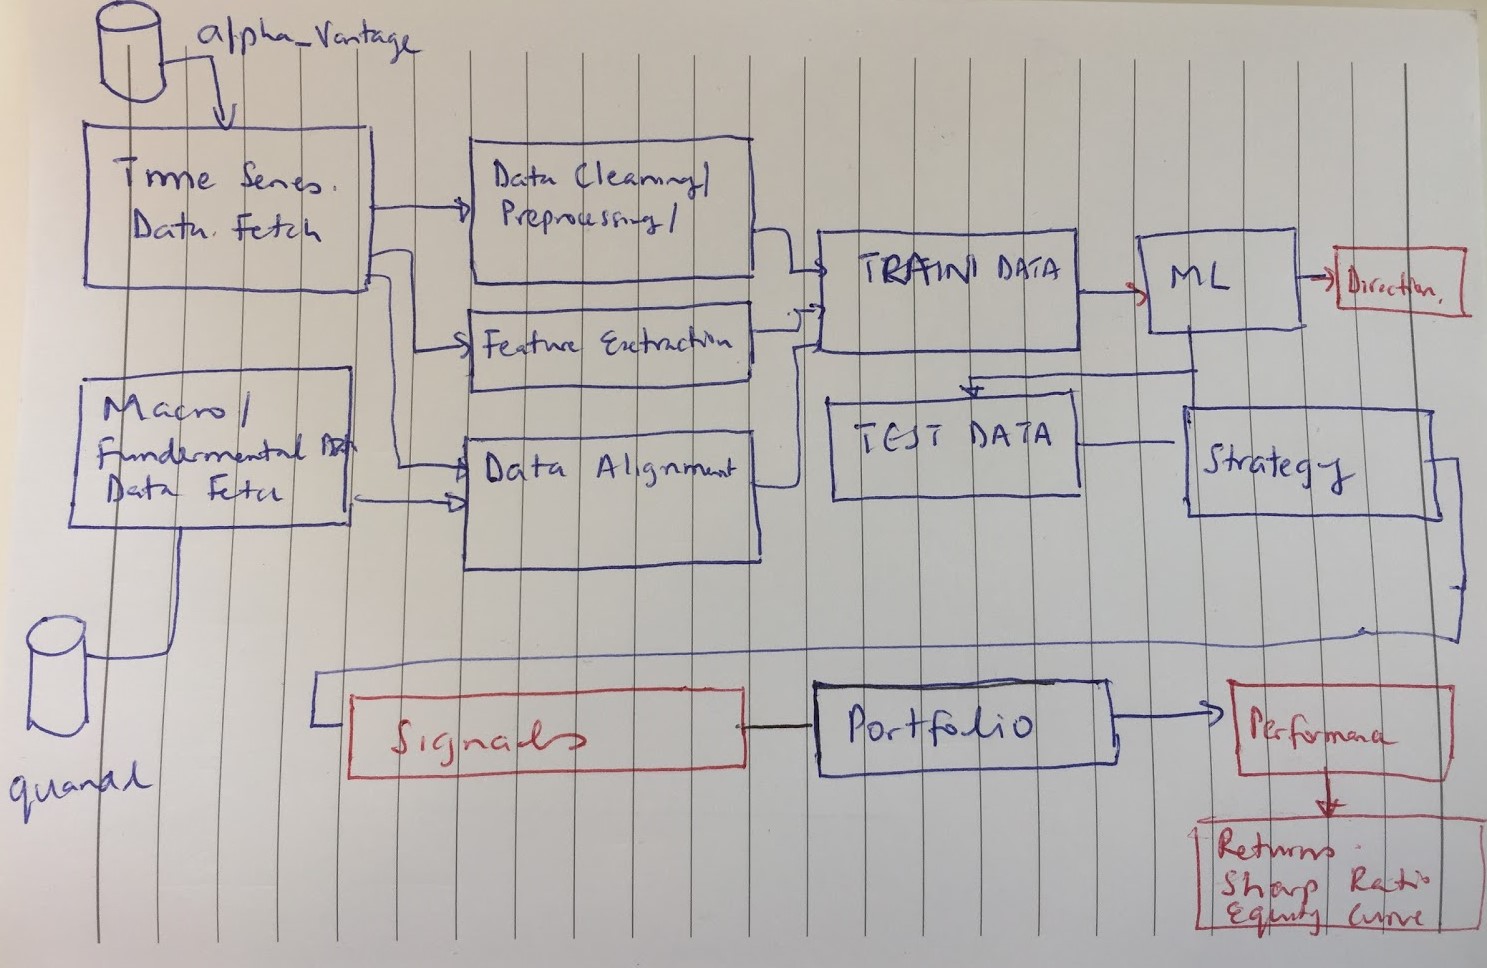 alpha_Vantage
Time Series.
Data. Fetch
Data Cleaning/
Preprocessing/
Feature Extraction
Data Alignment
Macro/
Fundermental
Data Fetch
quandl
TRAIN DATA
ML
Direction.
TEST DATA
Strategy
Signals
Portfolio
Performance
Returns.
Sharp Ratio
Equity Curve